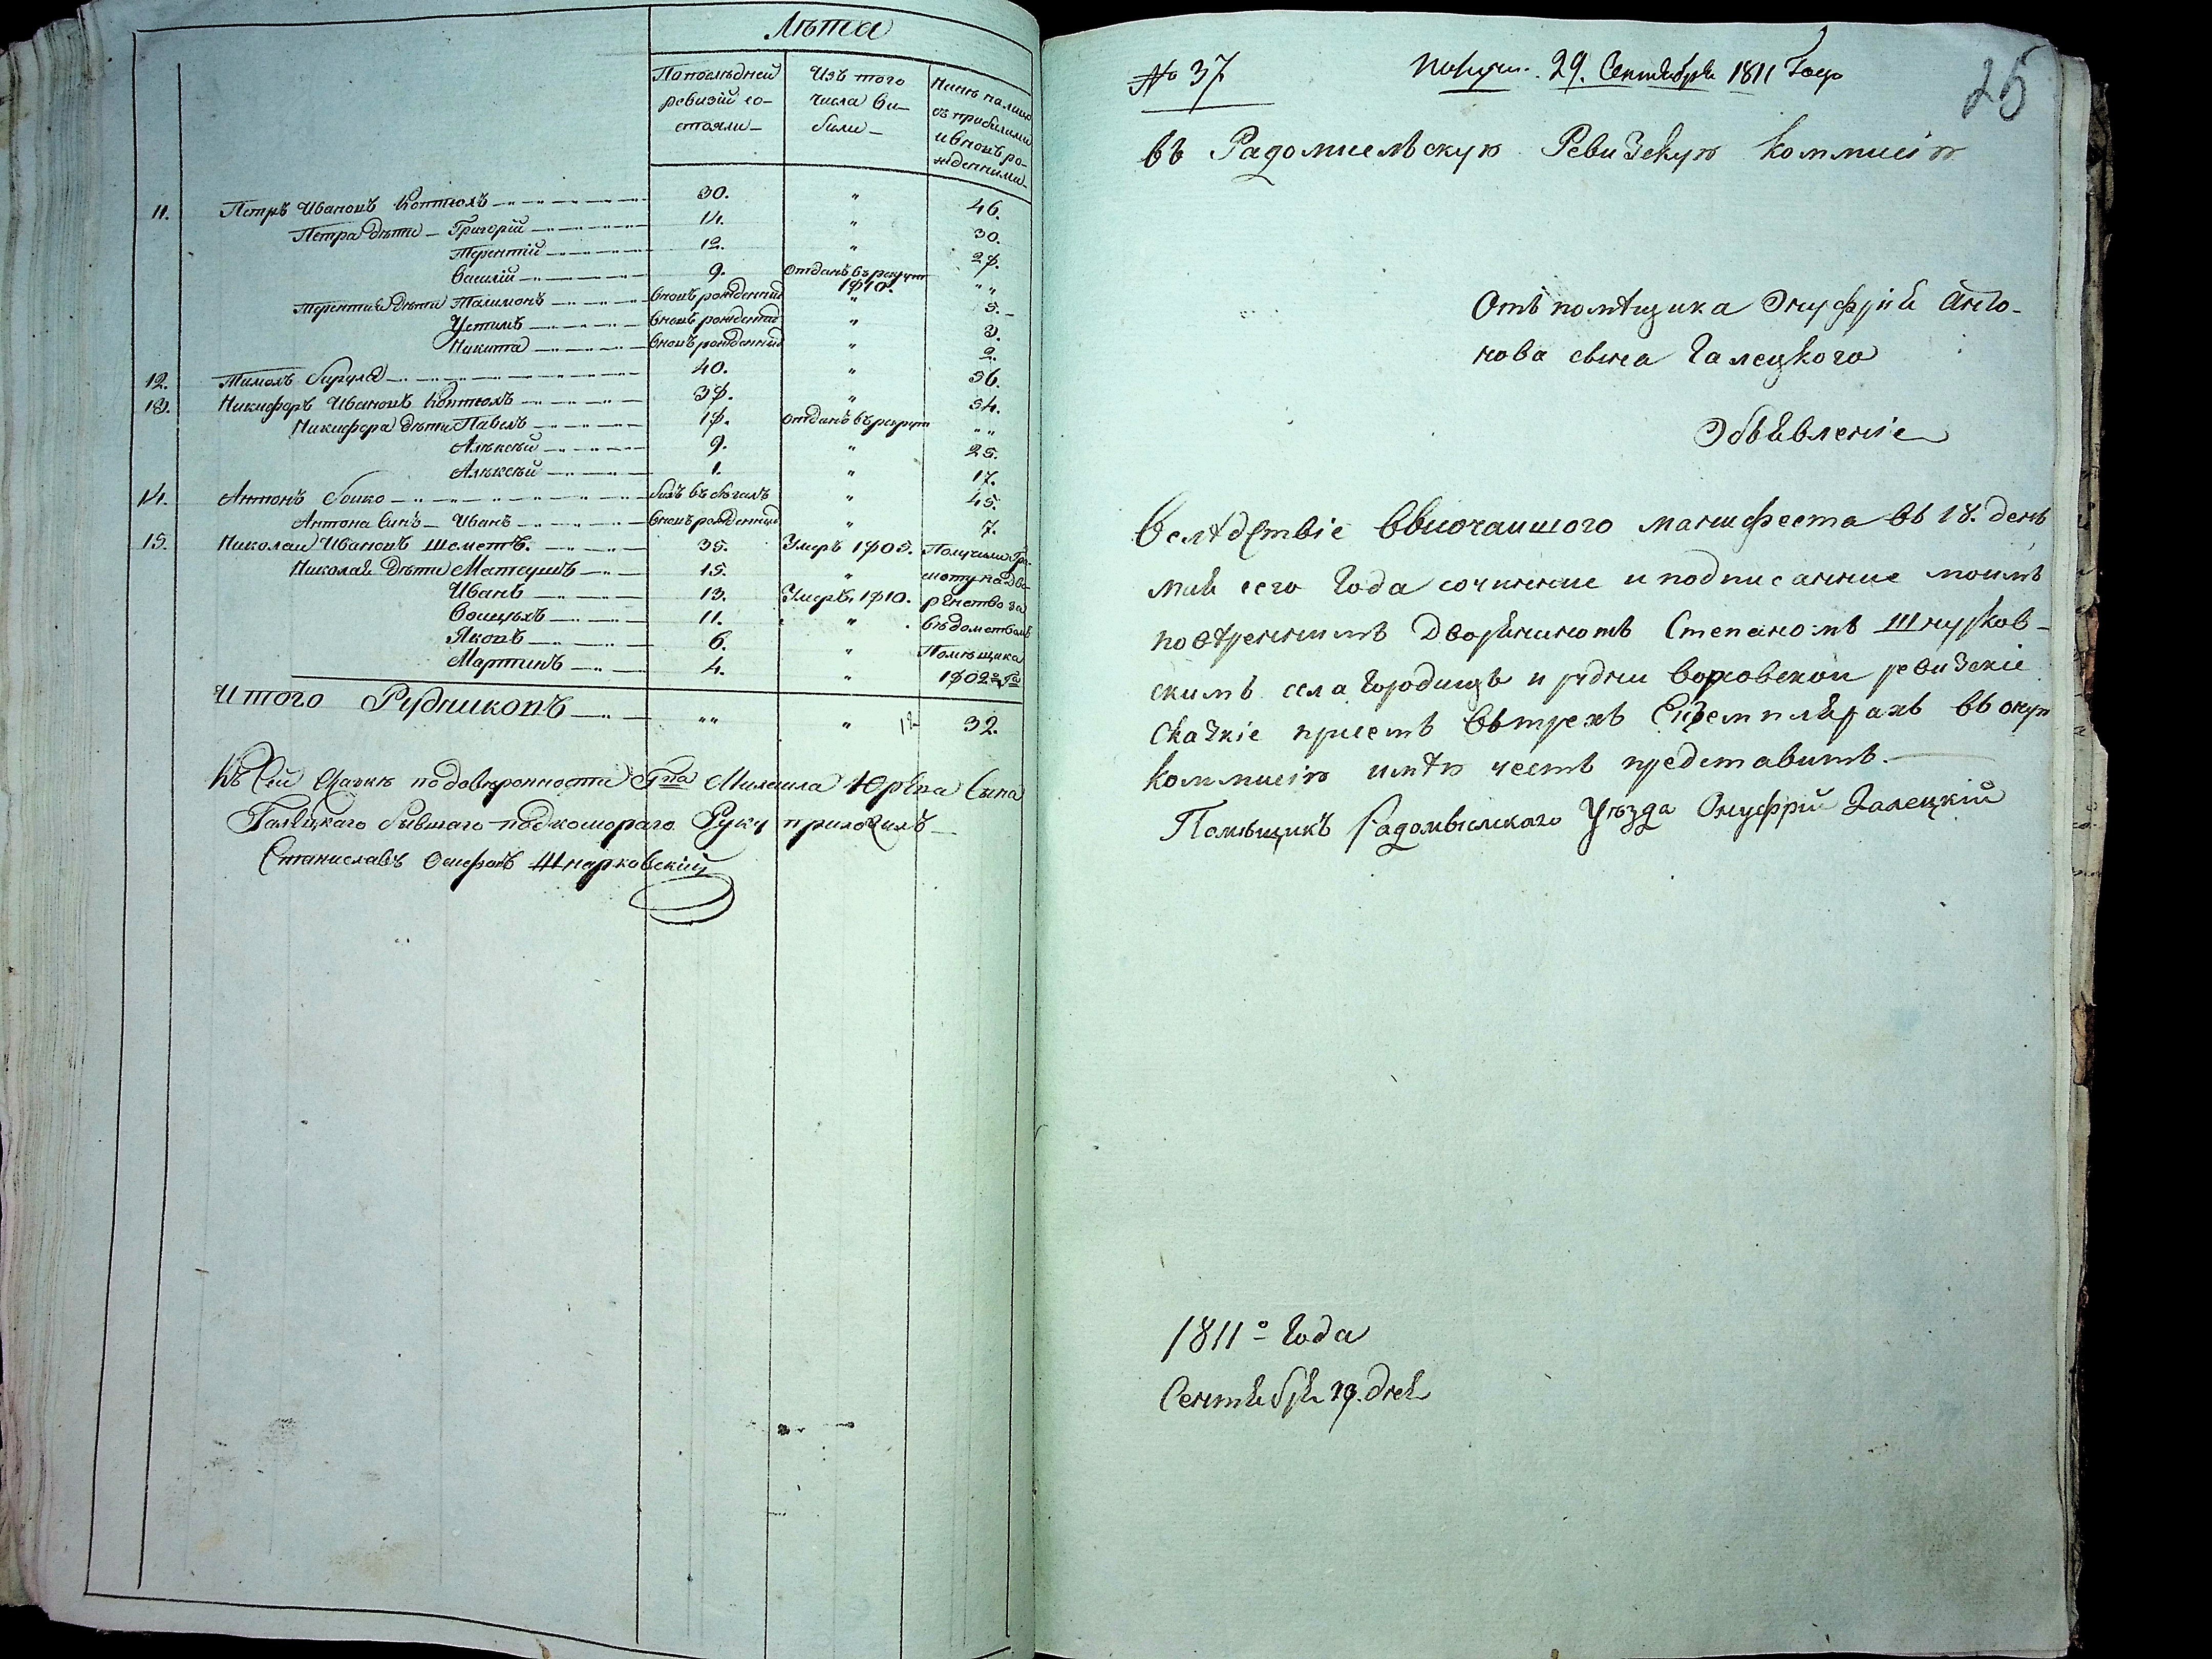 Лѣта
По послѣдней ревизіи со-стояли
Изъ того числа вы-были
Нынѣ на лицо съ прибылими и вновь ро-жденними
11. Петръ Ивановъ Коптюхъ 30. " 46.
Петра дѣти Григорій 14. " 30.
Терентій 12. " 28.
Василій 9. отданъ въ рекрут 1810. " "
Терентія дѣти вновь рожденний " 5.
Устимъ вновь рожденний " 3.
Никита вновь рожденний " 2.
12. 40. " 56.
13. Никифоръ Ивановъ Коптюхъ 38. " 54.
Никифора дѣти Павелъ 18. отданъ въ рекрут " "
Алѣксѣй 9. " 25.
Алѣксѣй 1. " 17.
14. Антонъ Бойко билъ въ бѣгахъ " 45.
Антона Синъ Иванъ вновь рожденний " 7.
15. Николай Ивановъ Шеметъ. 35. Умеръ 1805. Получили Гра-
Николая дѣти Матеушъ 15. " моту на дво-
Иванъ 13. Умеръ 1810. рянство за
Войцѣхъ 11. " вѣдомствомъ
Яковъ 6. " Помѣщика
Мартинъ 4. " 1802го Го
Итого Рудниковъ " " " 32.
Къ Сей Сказкѣ по довѣренности Михаила Юрьева Сына
Галецкаго бывшаго подкомораго Руку приложилъ
Станиславъ Осифовъ Шнарковскій
№ 37 Получ. 29. Сентября 1811 Года
25
въ Радомисльскую Ревизскую Коммисію
Отъ помѣщика Онуфрія Анто-
нова сына Галецкого
Объявленіе
Вслѣдствіе Ввисочаишого манифеста въ 18. день
мая сего Года сочинение и подписанние моимъ
повѣренннимъ Дворяниномъ Степаномъ Шнурков-
скимъ села Городищъ и рудни Воровской ревизскіе
Сказкіе присемъ Вътрехъ Екземплярахъ въ оную
Коммисію имѣю честь представить.
Помѣщикъ Радомысльского Уѣзда Онуфрій Галецкій
1811о Года
Сентября 29. дня